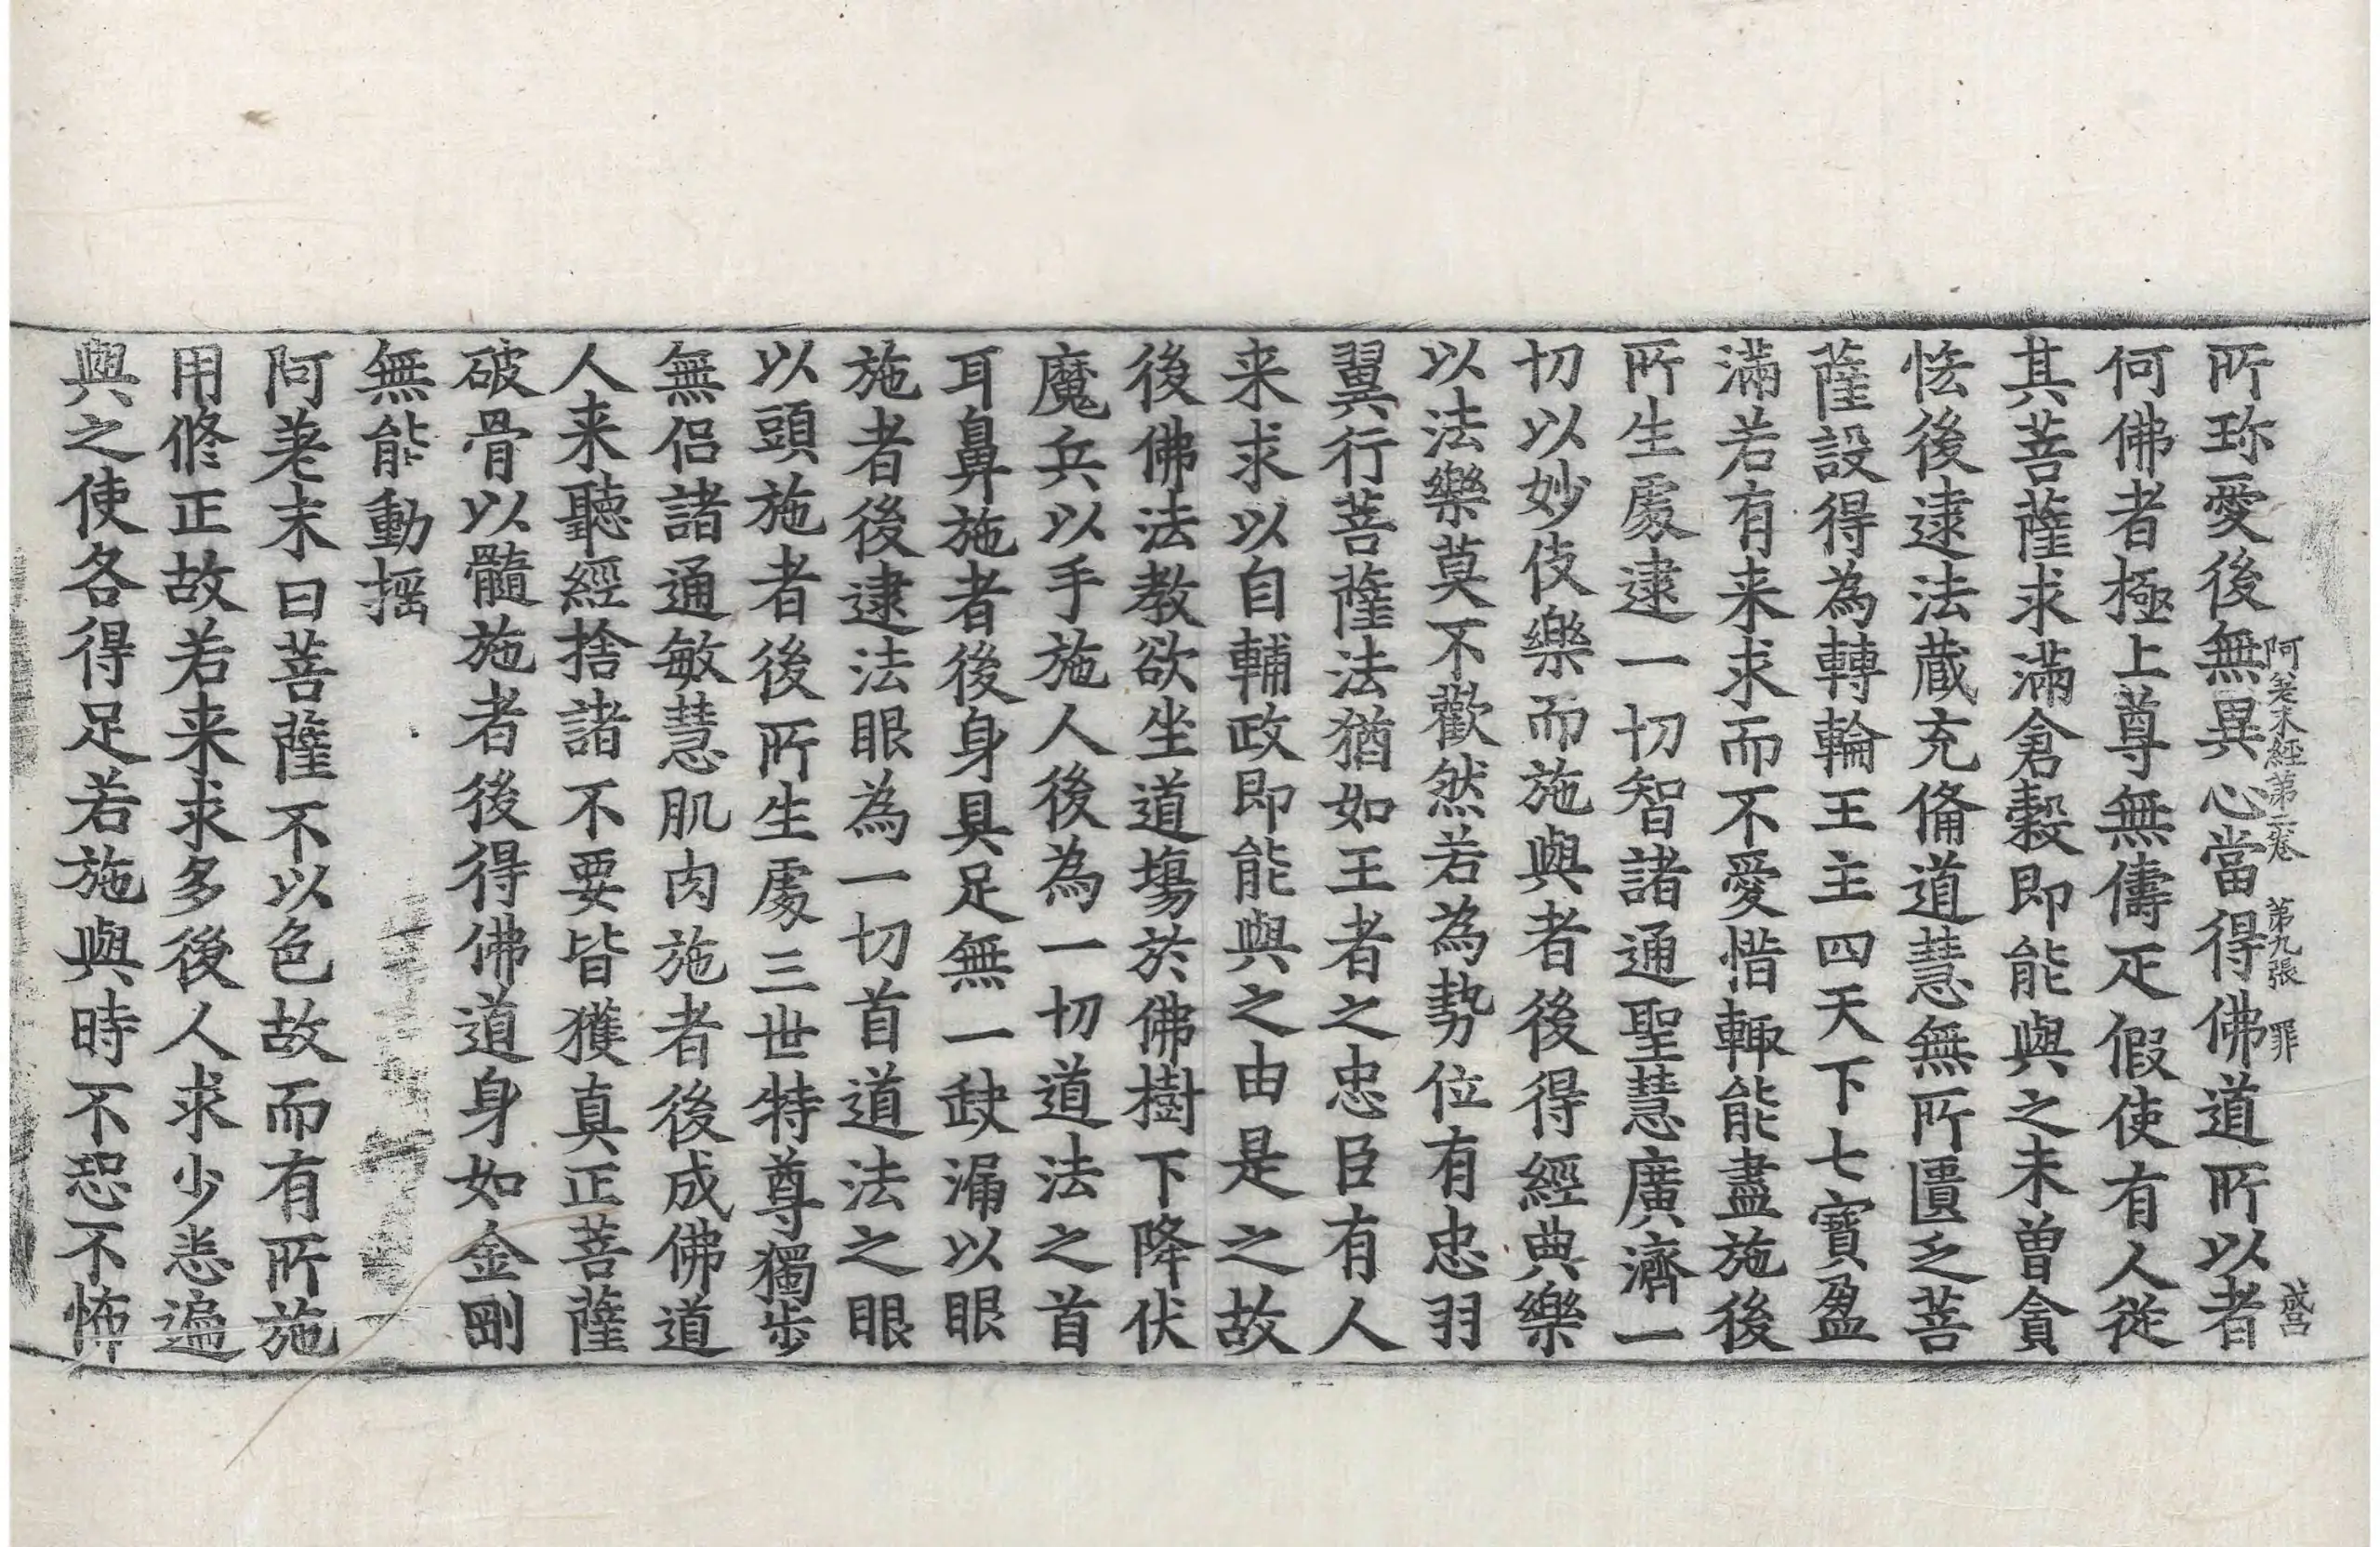 阿差末經第二卷 第九張 罪
所珎愛後無異心當得佛道所以者
何佛者極上尊無儔疋假使有人從
其菩薩求滿倉穀即能與之未曾貪
悋後逮法藏充俻道慧無所匱乏菩
薩設得為轉輪王主四天下七寶盈
滿若有来求而不愛惜輙能盡施後
所生處逮一切智諸通聖慧廣濟一
切以妙伎樂而施與者後得經典樂
以法樂莫不歡然若為勢位有忠羽
翼行菩薩法猶如王者之忠臣有人
来求以自輔政即能與之由是之故
後佛法教欲坐道場於佛樹下降伏
魔兵以手施人後為一切道法之首
耳鼻施者後身具足無一缺漏以眼
施者後逮法眼為一切首道法之眼
以頭施者後所生處三世特尊獨步
無侣諸通敏慧肌肉施者後成佛道
人来聽經捨諸不要皆獲真正菩薩
破骨以髓施者後得佛道身如金剛
無能動揺
阿差末曰菩薩不以色故而有所施
用修正故若来求多後人求少悉遍
與之使各得足若施與時不恐不怖